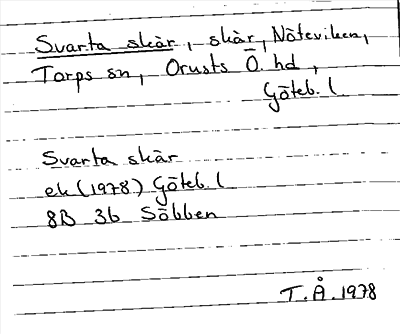 Svarta skär, skär, Nöteviken,
Torps sn, Orusts Ö. hd,
Göteb. l
Svarta skär
ek (1978) Göteb. l
8B 3b Säbben
T.Å. 1978